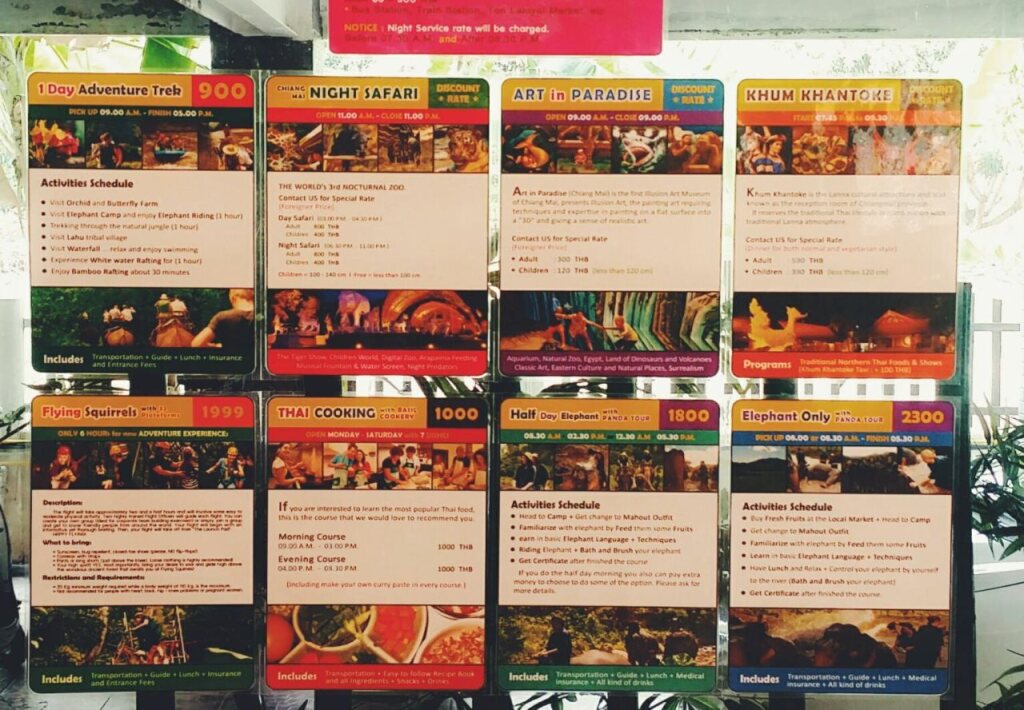 Bus Station, Train Station,
NOTICE : Night Service rate will be charged.
Before 07.30 A.M. and After 08.30 P.M.
1 Day Adventure Trek 900
PICK UP 09.00 A.M. - FINISH 05.00 P.M.
Activities Schedule
Visit Orchid and Butterfly Farm
Visit Elephant Camp and enjoy Elephant Riding (1 hour)
Trekking through the natural jungle (1 hour)
Visit Lahu tribal village
Visit Waterfall .. relax and enjoy swimming
Experience White water Rafting for (1 hour)
Enjoy Bamboo Rafting about 30 minutes
Includes Transportation + Guide + Lunch + Insurance
and Entrance Fees
CHIANG MAI NIGHT SAFARI DISCOUNT RATE
OPEN 11.00 A.M. - CLOSE 11.00 P.M.
THE WORLD'S 3rd NOCTURNAL ZOO.
Contact US for Special Rate
(Foreigner Price)
Day Safari (03.00 P.M. - 04.30 P.M.)
Adult 800 THB
Children 400 THB
Night Safari (06.30 P.M. - 11.00 P.M.)
Adult 800 THB
Children 400 THB
Children = 100 - 140 cm | Free = less than 100 cm
The Tiger Show, Children World, Digital Zoo, Arapaima Feeding
Musical Fountain & Water Screen, Night Predators
ART in PARADISE DISCOUNT RATE
OPEN 09.00 A.M. - CLOSE 09.00 P.M.
Art in Paradise (Chiang Mai) is the first Illusion Art Museum
of Chiang Mai, presents Illusion Art, the painting art requiring
techniques and expertise in painting on a flat surface into
a "3D" and giving a sense of realistic art.
Contact US for Special Rate
(Foreigner Price)
Adult : 300 THB
Children : 120 THB (less than 120 cm)
Aquarium, Natural Zoo, Egypt, Land of Dinosaurs and Volcanoes
Classic Art, Eastern Culture and Natural Places, Surrealism
KHUM KHANTOKE DISCOUNT RATE
START 07.45 P.M. to 09.30 P.M.
Khum Khantoke is the Lanna cultural attractions and also
known as the reception room of Chiangmai province.
It reserves the traditional Thai lifestyle in combination with
traditional Lanna atmosphere.
Contact US for Special Rate
(Dinner for both normal and vegetarian style)
Adult : 590 THB
Children : THB (less than 120 cm)
Programs Traditional Northern Thai Foods & Shows
(Khum Khantoke Taxi : + 100 THB)
Flying Squirrels with 33 Plateforms 1999
ONLY 6 HOURS for new ADVENTURE EXPERIENCE!
Description:
What to bring:
Restrictions and Requirements:
Includes Transportation + Guide + Lunch + Insurance
and Entrance Fees
THAI COOKING with BASIC COOKERY 1000
OPEN MONDAY - SATURDAY with 7 DISHES!
If you are interested to learn the most popular Thai food,
this is the course that we would love to recommend you.
Morning Course
09.00 A.M. - 03.00 P.M. 1000 THB
Evening Course
04.00 P.M. - 08.30 P.M. 1000 THB
(Including make your own curry paste in every course.)
Includes Transportation + Easy to follow Recipe Book
and all Ingredients + Snacks + Drinks
Half Day Elephant with PANDA TOUR 1800
08.30 A.M. 02.30 P.M. 12.30 A.M. 05.30 P.M.
Activities Schedule
Head to Camp + Get change to Mahout Outfit
Familiarize with elephant by Feed them some Fruits
earn in basic Elephant Language + Techniques
Riding Elephant + Bath and Brush your elephant
Get Certificate after finished the course
If you do the half day morning you also can pay extra
money to choose to do some of the option. Please ask for
more details.
Includes Transportation + Guide + Lunch + Medical
insurance + All kind of drinks
Elephant Only with PANDA TOUR 2300
PICK UP 08.00 or 08.30 A.M. - FINISH 05.30 P.M.
Activities Schedule
Buy Fresh Fruits at the Local Market + Head to Camp
Get change to Mahout Outfit
Familiarize with elephant by Feed them some Fruits
Learn in basic Elephant Language + Techniques
Have Lunch and Relax + Control your elephant by yourself
to the river (Bath and Brush your elephant)
Get Certificate after finished the course.
Includes Transportation + Guide + Lunch + Medical
insurance + All kind of drinks